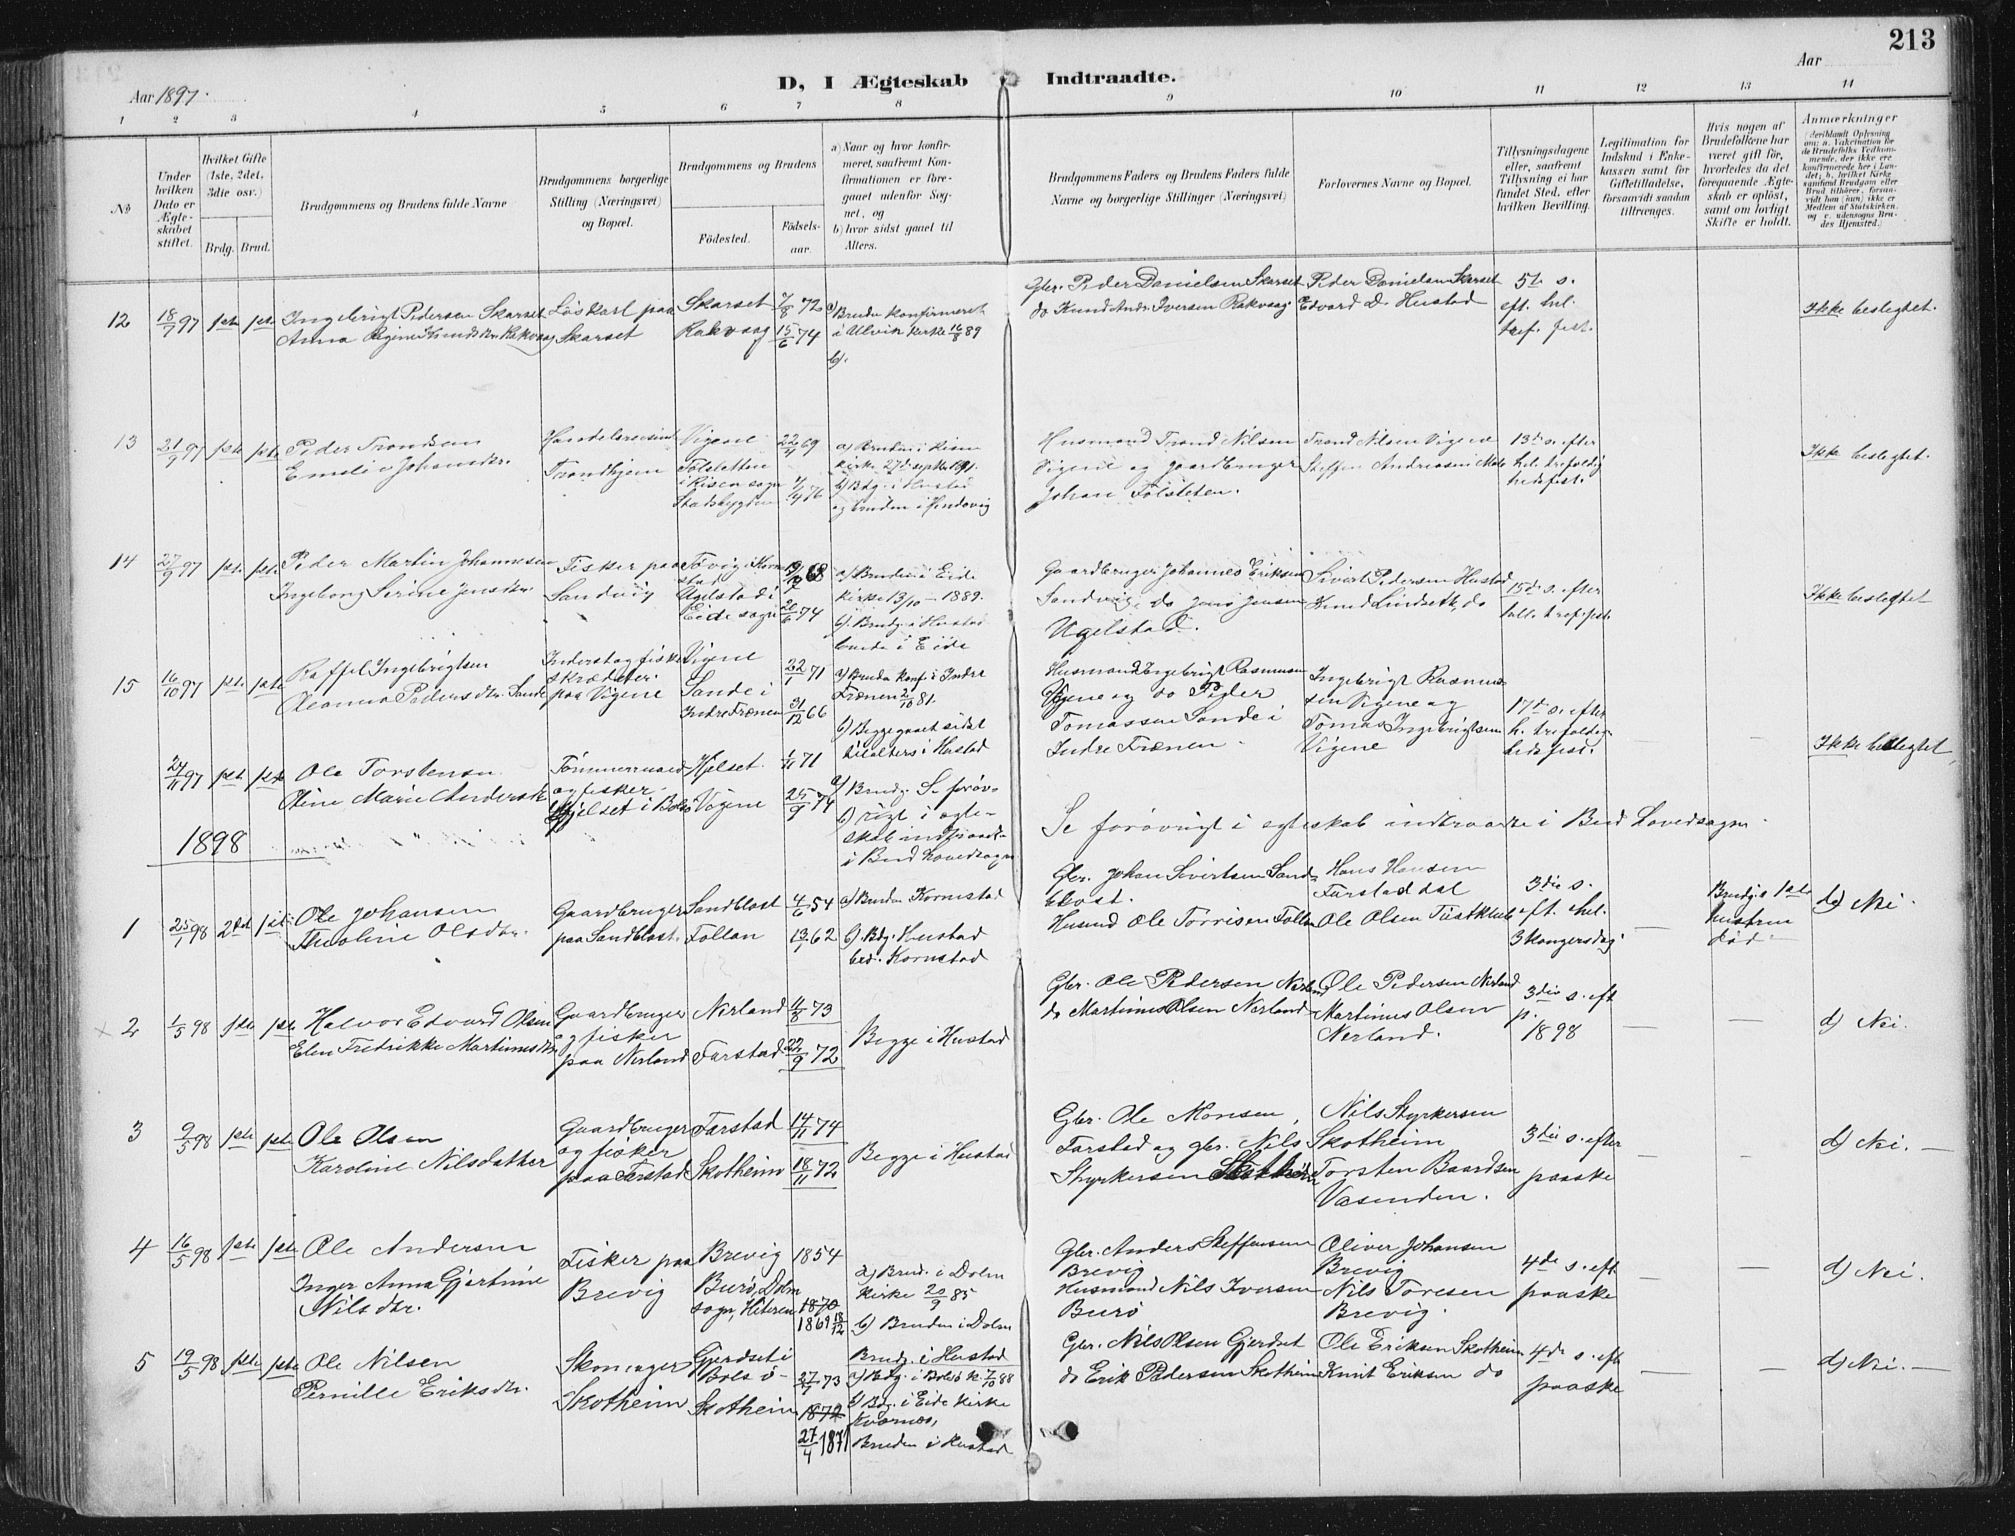 213
D, I Ægteskab Indtraadte.
Aar 1897.
Aar
1 2 3 4 5 6 7 8 9 10 11 12 13 14
No
Under hvilken Dato er Ægteskabet stiftet.
Hvilket Gifte (1ste, 2det, 3die osv.)
Brdg. Brud.
Brudgommens og Brudens fulde Navne
Brudgommens borgerlige Stilling (Næringsvei) og Bopæl.
Brudgommens og Brudens
Fødested.
Fødselsaar.
a) Naar og hvor konfirmeret, saafremt Konfirmationen er foregaaet udenfor Sognet, og
b) hvor sidst gaaet til Alters.
Brudgommens Faders og Brudens Faders fulde Navne og borgerlige Stillinger (Næringsvei)
Forlovernes Navne og Bopæl.
Tillysningsdagene eller, saafremt Tillysning ei har fundet Sted, efter hvilken Bevilling.
Legitimation for Indskud i Enkekassen samt for Giftetilladelse, forsaavidt saadan tiltrænges.
Hvis nogen af Brudefolkene har været gift før, hvorledes da det foregaaende Ægteskab er opløst, samt om lovligt Skifte er holdt.
Anmærkninger
12 18/7 97 1ste 1ste
Ingebrigt Pedersen Skarset
Anna Regine Knudsdtr. Rakvaag
Löskarl paa
Skarset
Skarset 7/8 72
Rakvaag 15/6 74
a) Bruden konfirmeret
i Ulvik kirke 16/8 89
b).
Gbr. Peder Danielsen Skarset
do Knud Andr. Iversen Rakvaag
Peder Danielsen Skarset
Edvard D. Hustad
5te s.
eft. hel.
tref. fest.
Ikke beslegtet.
13 21/9 97 1ste 1ste
Peder Trondsen
Emelie Johansdtr.
Trondhjem
Vigene 22/4 69
Tölsletten
i Risen sogn
Stadsbygden 7/4 76
a) Bruden i Risen
kirke 27de septbr 1891.
b) Bdg. i Hustad
og bruden i
Husmand Trond Nilsen
Vigene og gaardbruger
Johan Tölsleten.
Trond Nilsen Vigene
Steffen Andreasen Male
13de s. efter
hel. trefoldig
hedsfest.
Ikke beslegtet.
14 27/9 97 1ste 1ste
Peder Martin Johannesen
Ingeborg Serine Jensdtr.
Fisker paa
Sandvig
Tövig i Korn
stad 68
Ugelstad i
Eide sogn 20/6 74
a) Bruden i Eide
kirke 13/10 - 1889.
b) Brudg. i Hustad
brude i Eide
Gaardbruger Johannes Eriksen
Sandvig, do Jens Jensen
Ugelstad.
Sivert Pedersen Hustad
Knud Lindseth, do
15de s. efter
hell. tref. fest.
Ikke beslegtet
15 16/10 97 1ste 1ste
Raffel Ingebrigtsen
Pedersdtr. Sande
Inderst og fisker
skrædder
paa Vigene
Vigene 22/1 71
Sande i
Indre Frænen 31/12 66
a) Bruden konf. i Indre
Frænen 2/10 81.
b) Begge gaaet sidst
til alters i Hustad
Husmand Ingebrigt Rasmussen
Vigene og do Peder
Tomassen Sande i
Indre Frænen.
Ingebrigt Rasmus
sen Vigene og
Tomas Ingebrigtsen
Vigene
17de s. efter
h. trefoldig
hedsfest.
Ikke beslegtet
24/11 97 1ste 1ste
Ole Torstensen
Oline Marie Andersdtr.
Tömmermand
og fisker
Hjelset i Bolsö
Hjelset 1/11 71
Vigene 25/9 74
a) Brudg. Se foröv-
b) rigt i egte-
skab indtraadt
i Bud hovedsogn
Se forövrigt i egteskab indtraadte i Bud hovedsogn.
1898
1 25/1 98 2det 1ste
Ole Johansen
Thioline Olsdtr.
Gaardbruger
paa Sandblost.
Sandblost 4/6 54
Follan 13/1 62
a) Bruden Kornstad
b) Bdg. Hustad
brd. Kornstad
Gbr. Johan Sivertsen Sand-
blost.
Husmd Ole Torrisen Follan
Hans Hansen
Farstaddal
Ole Olsen Tustklub
3die s.
eft. hel.
3 kongersdag
Brudg.s 1ste
hustru
död
d) Nei.
2 1/5 98 1ste 1ste
Halvor Edvard Olsen
Elen Fredrikke Martinusdtr.
Gaardbruger
og fisker
paa Nerland
Nerland 11/8 73
Farstad 22/9 72
Begge i Hustad
Gbr. Ole Pedersen Nerland
do Martinus Olsen Nerland
Ole Pedersen Nerland
Martinus Olsen
Nerland.
3die s. eft
p.
1898
d) Nei.
3 9/5 98 1ste 1ste
Ole Olsen
Karoline Nilsdatter
Gaardbruger
og fisker
paa Farstad
Farstad 14/11 74
Skotheim 18/11 72
Begge i Hustad
Gbr. Ole Monsen,
Farstad og gbr. Nils
Styrkersen Skotheim
Nils Styrkersen
Skotheim
Torsten Baardsen
Vasenden.
3die s. efter
paaske
d) Nei.
4 16/5 98 1ste 1ste
Ole Andersen
Inger Anna Gjertine
Nilsdtr.
Fisker paa
Brevig
Brevig 1854
Burö, Dolm
sogn, Hiteren 1870
1869 18/12
a) Brud. i Dolm
kirke 20/9 85
b) Bruden i Dolm
Brudg. i Hustad
Gbr. Anders Steffensen
Brevig
Husmand Nils Iversen
Burö
Oliver Johansen
Brevig
Nils Toresen
Brevig.
4de s. eft
paaske
d) Nei.
5 19/5 98 1ste 1ste
Ole Nilsen
Pernille Eriksdtr.
Skomager
Skotheim
Gjerdset i
Bolsö 27/1 73
Skotheim 1872
27/4 1871
a) Bdg. i Bolsö k. 7/10 88
b) Bdg. i Eide kirke
Kvernes,
Bruden i Hustad
Gbr. Nils Olsen Gjerdset
do Erik Pedersen Skotheim
Ole Eriksen Skotheim
Knut Eriksen do
4de s. eft
paaske
d) Nei.